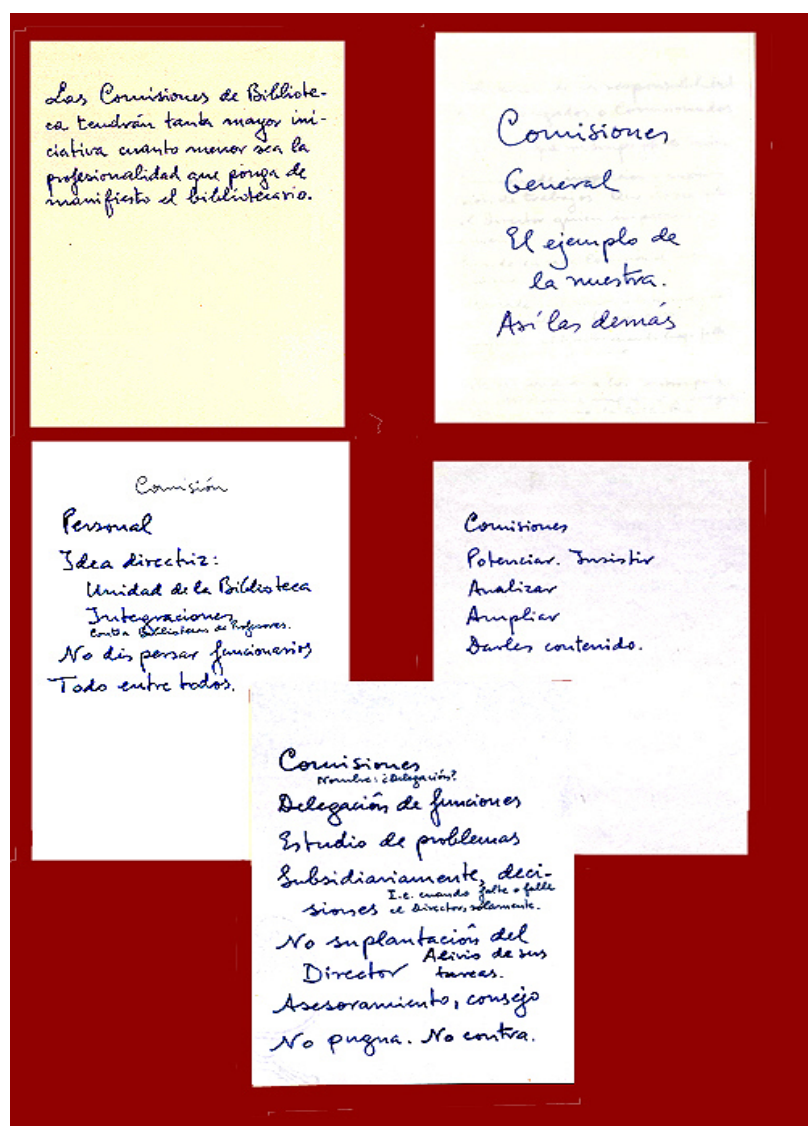 Las Comisiones de Bibliote-
ca tendrán tanta mayor ini-
ciativa cuanto menor sea la
profesionalidad que ponga de
manifiesto el bibliotecario.
Comisiones
General
El ejemplo de
la nuestra.
Así las demás
Comisión
Personal
Idea directriz:
Unidad de la Biblioteca
Integraciones
contra Bibliotecas de Profesores.
No dispersar funcionarios
Todo entre todos.
Comisiones
Potenciar. Insistir
Analizar
Ampliar
Darles contenido.
Comisiones
Nombre: ¿Delegación?
Delegación de funciones
Estudio de problemas
Subsidiariamente, deci-
I.e. cuando falte o falle
siones el Director, solamente.
No suplantación del
Director Alivio de sus
tareas.
Asesoramiento, consejo
No pugna. No contra.